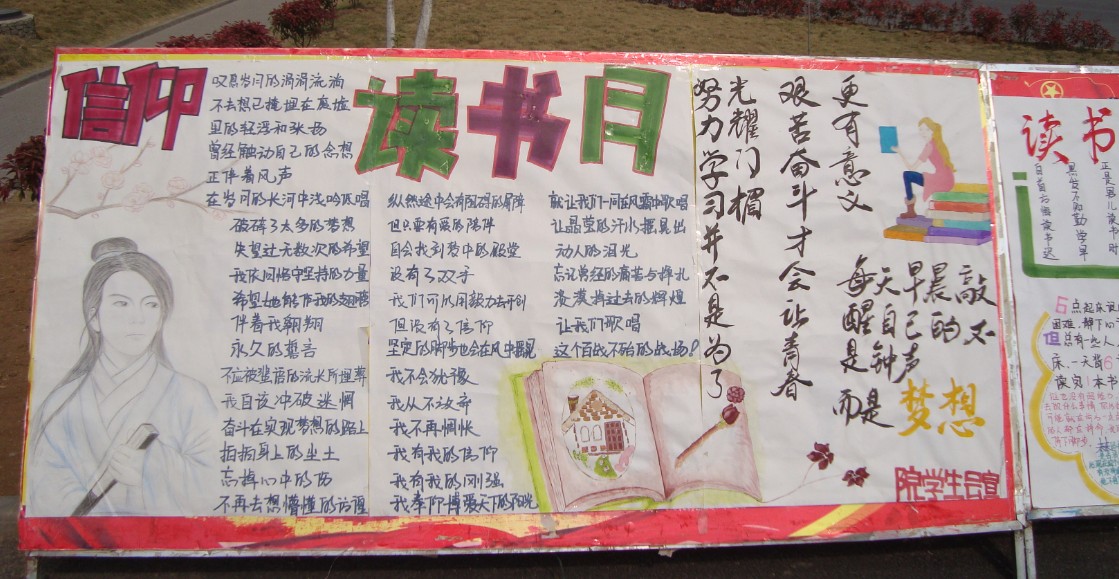 信仰
读书月
叹息岁月的涓涓流淌
不去想已掩埋在废墟
里的轻浮和张扬
曾经触动自己的念想
正伴着风声
在岁月的长河中浅吟低唱
破碎了太多的梦想
失望过无数次的希望
我依同怀中坚持的力量
希望她能作我的翅膀
伴着我翱翔
永久的誓言
不应被世俗的流长所埋葬
我自该冲破迷惘
奋斗在实现梦想的路上
拍拍身上的尘土
忘掉心中的伤
不再去想懵懂的彷徨
纵然途中会有阻碍的屏障
但只要有爱的陪伴
自会找到梦中的殿堂
没有了双手
我们可以用毅力去开创
但没有了信仰
坚定的脚步也会在风中摇晃
我不会犹豫
我从不放弃
我不再惆怅
我有我的信仰
我有我的刚强
我奉仰博爱天下的阳光
就让我们一同在风霜中歌唱
让晶莹的汗水摇晃出
动人的泪光
忘记曾经的痛苦与挣扎
泼洒掉过去的辉煌
让我们歌唱
这个百战不殆的战场!
努力学习并不是为了
光耀门楣
艰苦奋斗才会让青春
更有意义
每天早晨敲
醒自己的不
是钟声
而是
梦想
院学生学宣
读书
6点起床
困难,静下
但总有一些人
床,一天背6
读完1本书